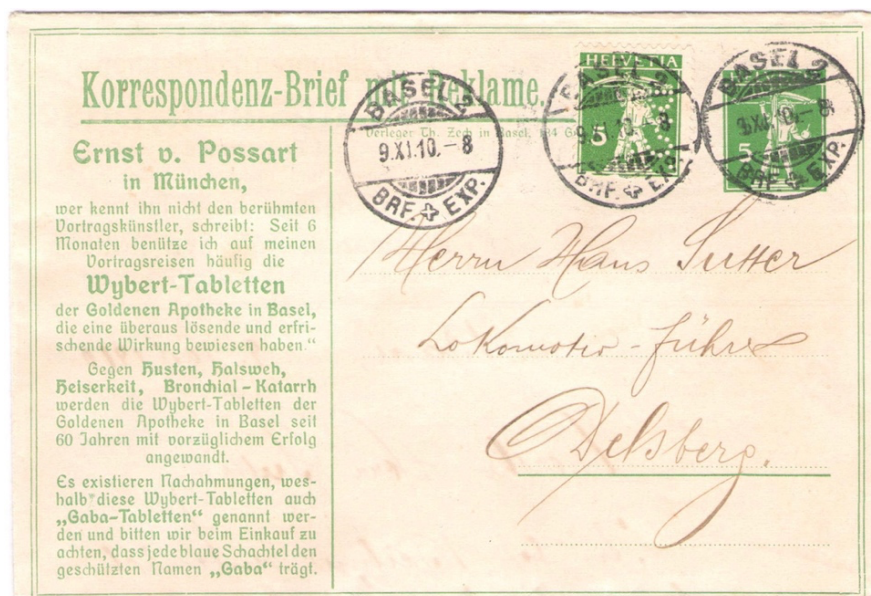 Korrespondenz-Brief mit Reklame.
Verleger Th. Zech in Basel, 134 G
Ernst v. Possart
in München,
wer kennt ihn nicht den berühmten
Vortragskünstler, schreibt: Seit 6
Monaten benütze ich auf meinen
Vortragsreisen häufig die
Wybert-Tabletten
der Goldenen Apotheke in Basel,
die eine überaus lösende und erfri-
schende Wirkung bewiesen haben."
Gegen Husten, Halsweh,
Heiserkeit, Bronchial-Katarrh
werden die Wybert-Tabletten der
Goldenen Apotheke in Basel seit
60 Jahren mit vorzüglichem Erfolg
angewandt.
Es existieren Nachahmungen, wes-
halb diese Wybert-Tabletten auch
„Gaba-Tabletten" genannt wer-
den und bitten wir beim Einkauf zu
achten, dass jede blaue Schachtel den
geschützten Namen „Gaba" trägt.
BASEL 2
9.XI.10.-8
BRF. EXP.
HELVETIA
5
BASEL 2
9.XI.10.-8
BRF. EXP.
BASEL 2
9.XI.10.-8
BRF. EXP.
5
Herrn Hans Sutter
Lokomotiv-führer
Delsberg.